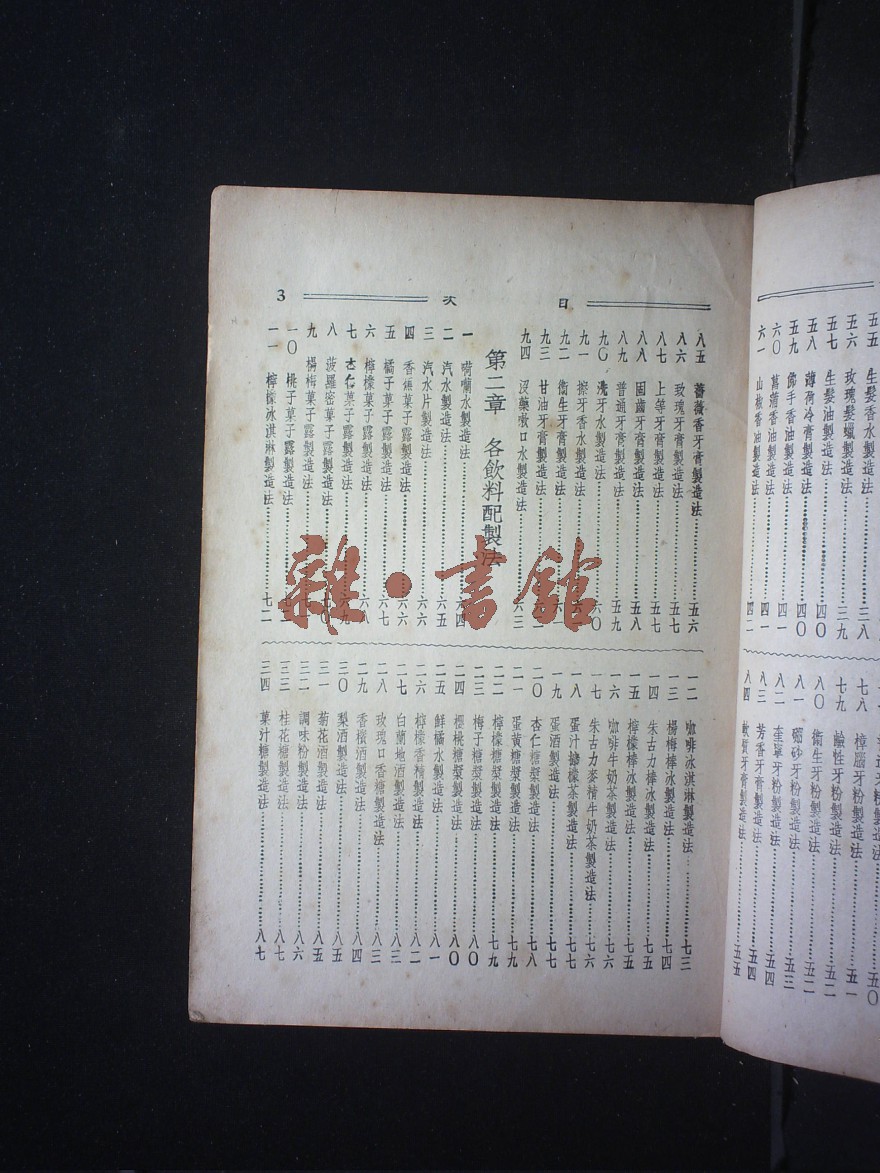 五五　生髮香水製造法…………三八
五六　玫瑰髮蠟製造法…………三九
五七　生髮油製造法…………四〇
五八　薄荷冷膏製造法…………四〇
五九　佛手香油製造法…………四一
六〇　菖蒲香油製造法…………四一
六一　山椒香油製造法…………四二
五〇
七八　樟腦牙粉製造法…………五一
七九　鹼性牙粉製造法…………五二
八〇　衛生牙粉製造法…………五二
八一　硼砂牙粉製造法…………五三
奎寧牙粉製造法…………五四
八三　芳香牙膏製造法…………五四
八四　軟質牙膏製造法…………五五
目　次　3
八五　薔薇香牙膏製造法…………五六
八六　玫瑰牙膏製造法…………五七
八七　上等牙膏製造法…………五七
八八　固齒牙膏製造法…………五八
八九　普通牙膏製造法…………五九
九〇　洗牙水製造法…………六〇
九一　擦牙香水製造法…………六一
九二　衛生牙膏製造法…………六
九三　甘油牙膏製造法…………六二
九四　沒藥嗽口水製造法…………六三
第二章　各飲料配製法
一　嗬蘭水製造法…………六四
二　汽水製造法…………六五
三　汽水片製造法…………六六
四　香蕉菓子露製造法…………六六
五　橘子菓子露製造法…………六七
六　檸檬菓子露製造法…………六八
七　杏仁菓子露製造法…………六九
八　菠羅密菓子露製造法…………七〇
九　楊梅菓子露製造法…………七
一〇　桃子菓子露製造法…………七二
一一　檸檬冰淇淋製造法…………七二
一二　咖啡冰淇淋製造法…………七三
一三　楊梅棒冰製造法…………七四
一四　朱古力棒冰製造法…………七五
一五　檸檬棒冰製造法…………七五
一六　咖啡牛奶茶製造法…………七六
一七　朱古力麥精牛奶茶製造法…………七六
一八　蛋汁檸檬茶製造法…………七七
一九　蛋酒製造法…………七七
二〇　杏仁糖漿製造法…………七八
二一　蛋黃糖漿製造法…………七九
二二　檸檬糖漿製造法…………七九
二三　梅子糖漿製造法…………八〇
二四　櫻桃糖漿製造法…………八〇
二五　鮮橘水製造法…………八一
二六　檸檬香精製造法…………八二
二七　白蘭地酒製造法…………八三
二八　玫瑰口香糖製造法…………八三
二九　香檳酒製造法…………八四
三〇　梨酒製造法…………八五
三一　菊花酒製造法…………八五
三二　調味粉製造法…………八六
三三　桂花糖製造法…………八七
三四　菓汁糖製造法…………八七
雜·書館